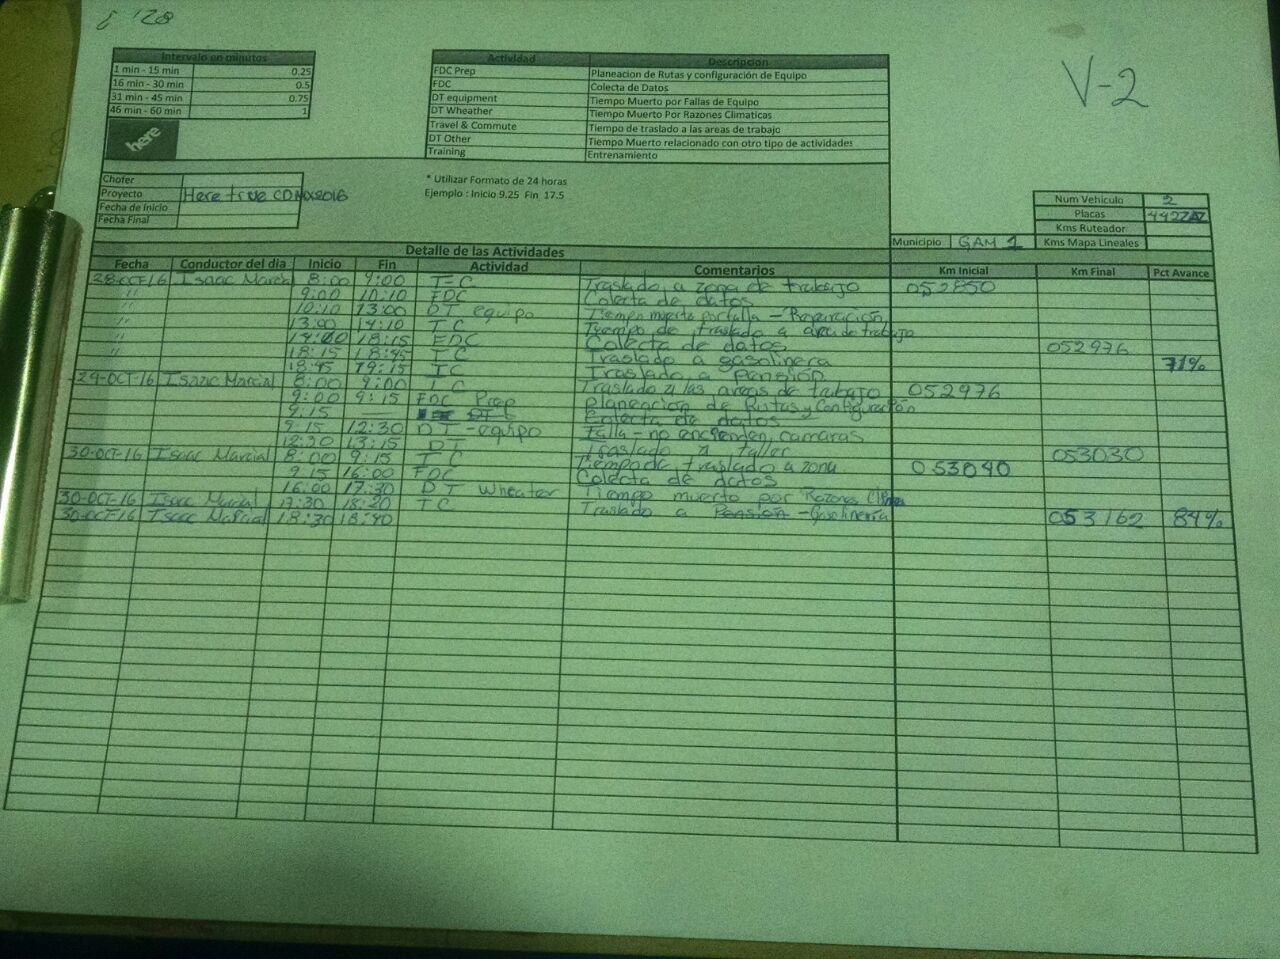 128
V-2
Intervalo en minutos
1 min - 15 min 0.25
16 min - 30 min 0.5
31 min - 45 min 0.75
46 min - 60 min 1
here
Actividad Descripcion
FDC Prep Planeacion de Rutas y configuración de Equipo
FDC Colecta de Datos
DT equipment Tiempo Muerto por Fallas de Equipo
DT Wheather Tiempo Muerto Por Razones Climaticas
Travel & Commute Tiempo de traslado a las areas de trabajo
DT Other Tiempo Muerto relacionado con otro tipo de actividades
Training Entrenamiento
Chofer
Proyecto Here true CDMX2016
Fecha de Inicio
Fecha Final
* Utilizar Formato de 24 horas
Ejemplo : Inicio 9.25 Fin 17.5
Num Vehiculo 2
Placas
Kms Ruteador
Municipio GAM 1 Kms Mapa Lineales
Detalle de las Actividades
Fecha Conductor del dia Inicio Fin Actividad Comentarios Km Inicial Km Final Pct Avance
28-OCT16 Isaac Marcial 8:00 9:00 T-C Traslado a zona de trabajo 052850
" 9:00 10:10 FDC Colecta de datos
" 10:10 13:00 DT equipo Tiempo muerto por falla - Reparación
" 13:00 14:10 TC Tiempo de traslado a area de trabajo
" 14:00 18:15 FDC Colecta de datos 052976
" 18:15 18:45 TC Traslado a gasolinera 71%
18:45 19:15 TC Traslado a Pensión
29-OCT-16 Isaac Marcial 8:00 9:00 TC Traslado a las areas de trabajo 052976
9:00 9:15 FDC Prep Planeación de Rutas y Configuración
9:15 — Colecta de datos
9:15 12:30 DT-equipo Falla - no encienden camaras
12:30 13:15 DT Traslado a taller 053030
30-OCT-16 Isaac Marcial 8:00 9:15 TC Tiempo de traslado a zona 053040
9:15 16:00 FDC Colecta de datos
16:00 17:30 DT Wheater Tiempo muerto por Razones
30-OCT-16 Isaac Marcial 17:30 18:20 TC Traslado a Pensión - Gasolinería
30-OCT16 Isaac Marcial 18:30 18:40 053162 84%